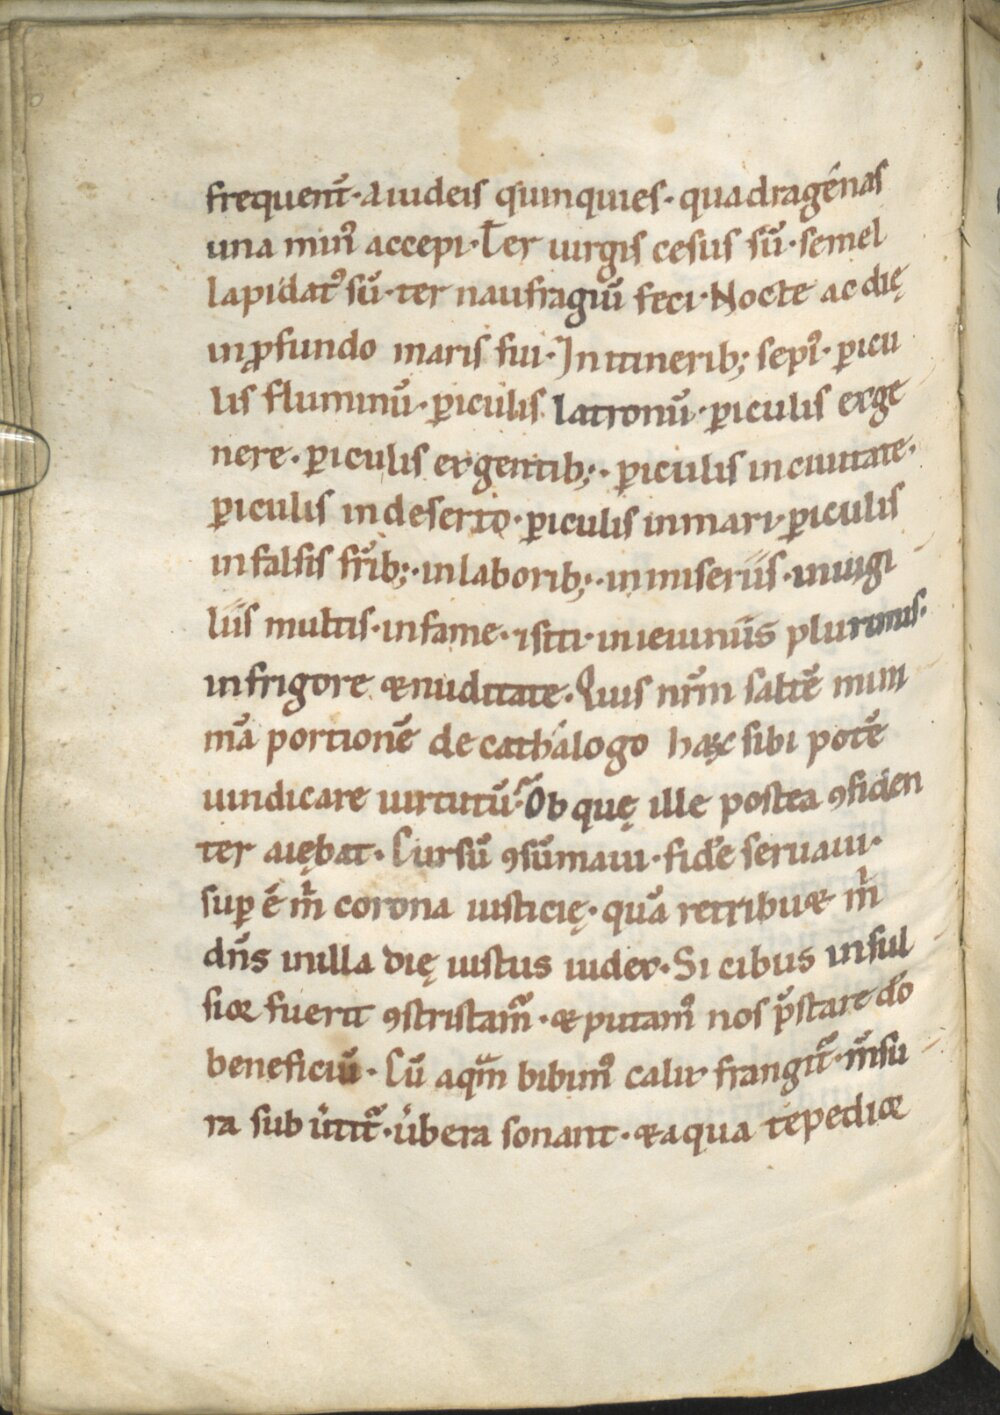 frequent̄·a iudeis quinquies·quadragenas
una min᾿ accepi·Ter uirgis cesus sū·semel
lapidat᾿ sū·ter naufragiū feci·Nocte ac dię
inꝓfundo maris fui·In itinerib; sepi᾿·ꝑicu
lis fluminū·ꝑiculis latronū·ꝑiculis exge
nere·ꝑiculis exgentib;·ꝑiculis inciuitate·
ꝑiculis indeserto·ꝑiculis inmari·ꝑiculis
infalsis fr̄ib;·inlaborib;·inmiseriis·inuigi
liis multis·infame·⁊siti·inieiuniis plurimis·
infrigore &nuditate·Quis nr̄m saltē mini
mā portionē de cathalogo hasͨ sibi potē
uindicare uirtutū·Ob quę ille postea ꝯfiden
ter aiębat·Cursū ꝯsūmaui·fidē seruaui·
suꝑ ē m̄ corona iusticię·quā retribu& m̄
dn̄s inilla dię iustus iudex·Si cibus insul
sior fuerit ꝯtristam᷑·&putam᾿ nos p̄stare dō
beneficiū·Cū aqm̄ bibim᾿ calix frangit᷑·m̄su
ra sub u̇tit᷑·u̇bera sonant·&aqua tepedior